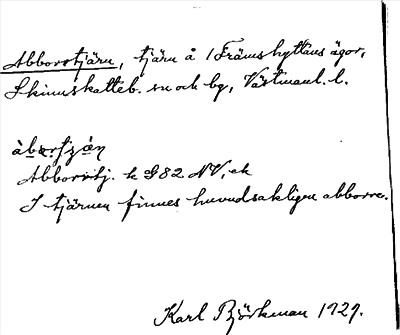 Abborrtjärn, tjärn å 1 Främshyttans ägor,
Skinnskatteb. sn och bg, Västmanl. l.
àbərʃɟæ̀n
Abborrtj. k G82 NV, ek
I tjärnen finnes huvudsakligen abborre.
Karl Björkman 1929.